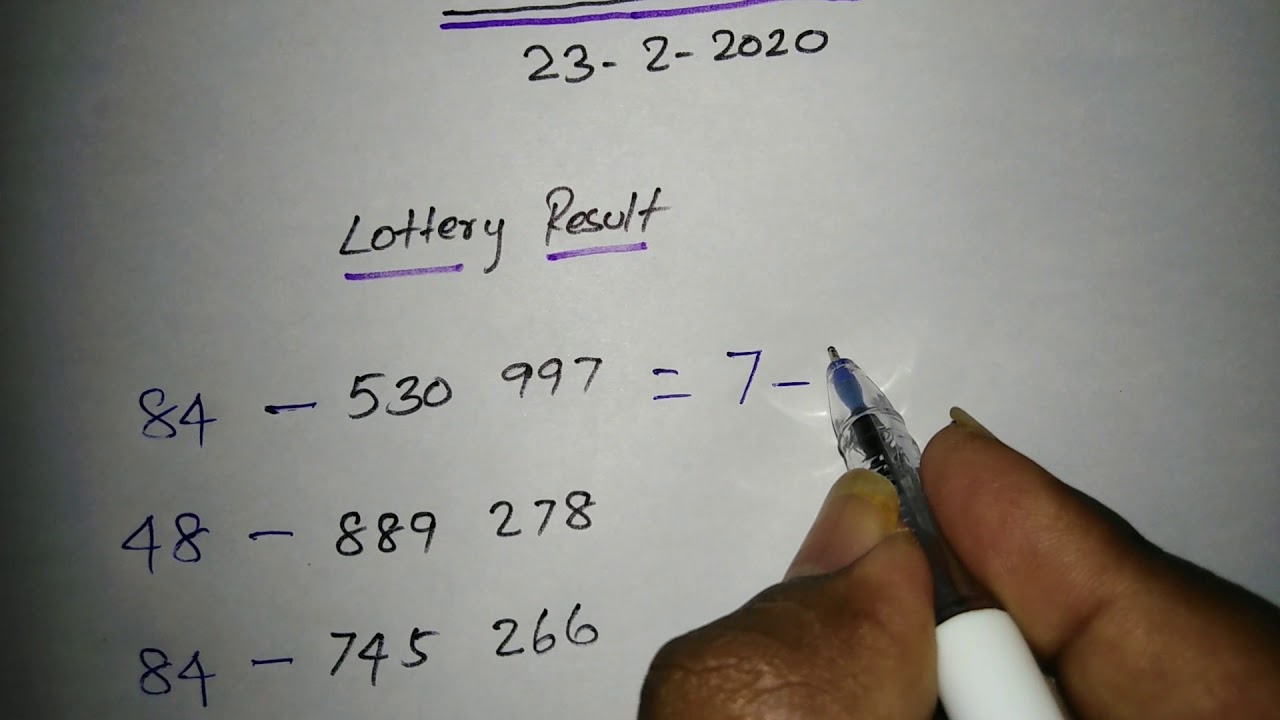 23-2-2020
Lottery Result
84 - 530 997 = 7-
48 - 889 278
84 - 745 266